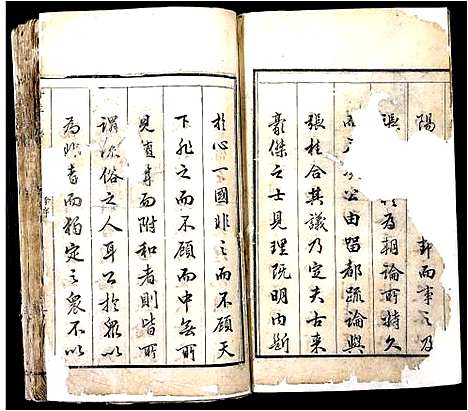 陽
卦而筆之乃
濵 以為朝論所持久
公由留都疏論與
張桂合其議乃定夫古来
豪傑之士見理既明内斷
於心一國非之而不顧天
下非之而不顧而中無所
見道耳而附和者則皆所
謂流俗之人耳公於衆以
為非者而獨定之衆不以